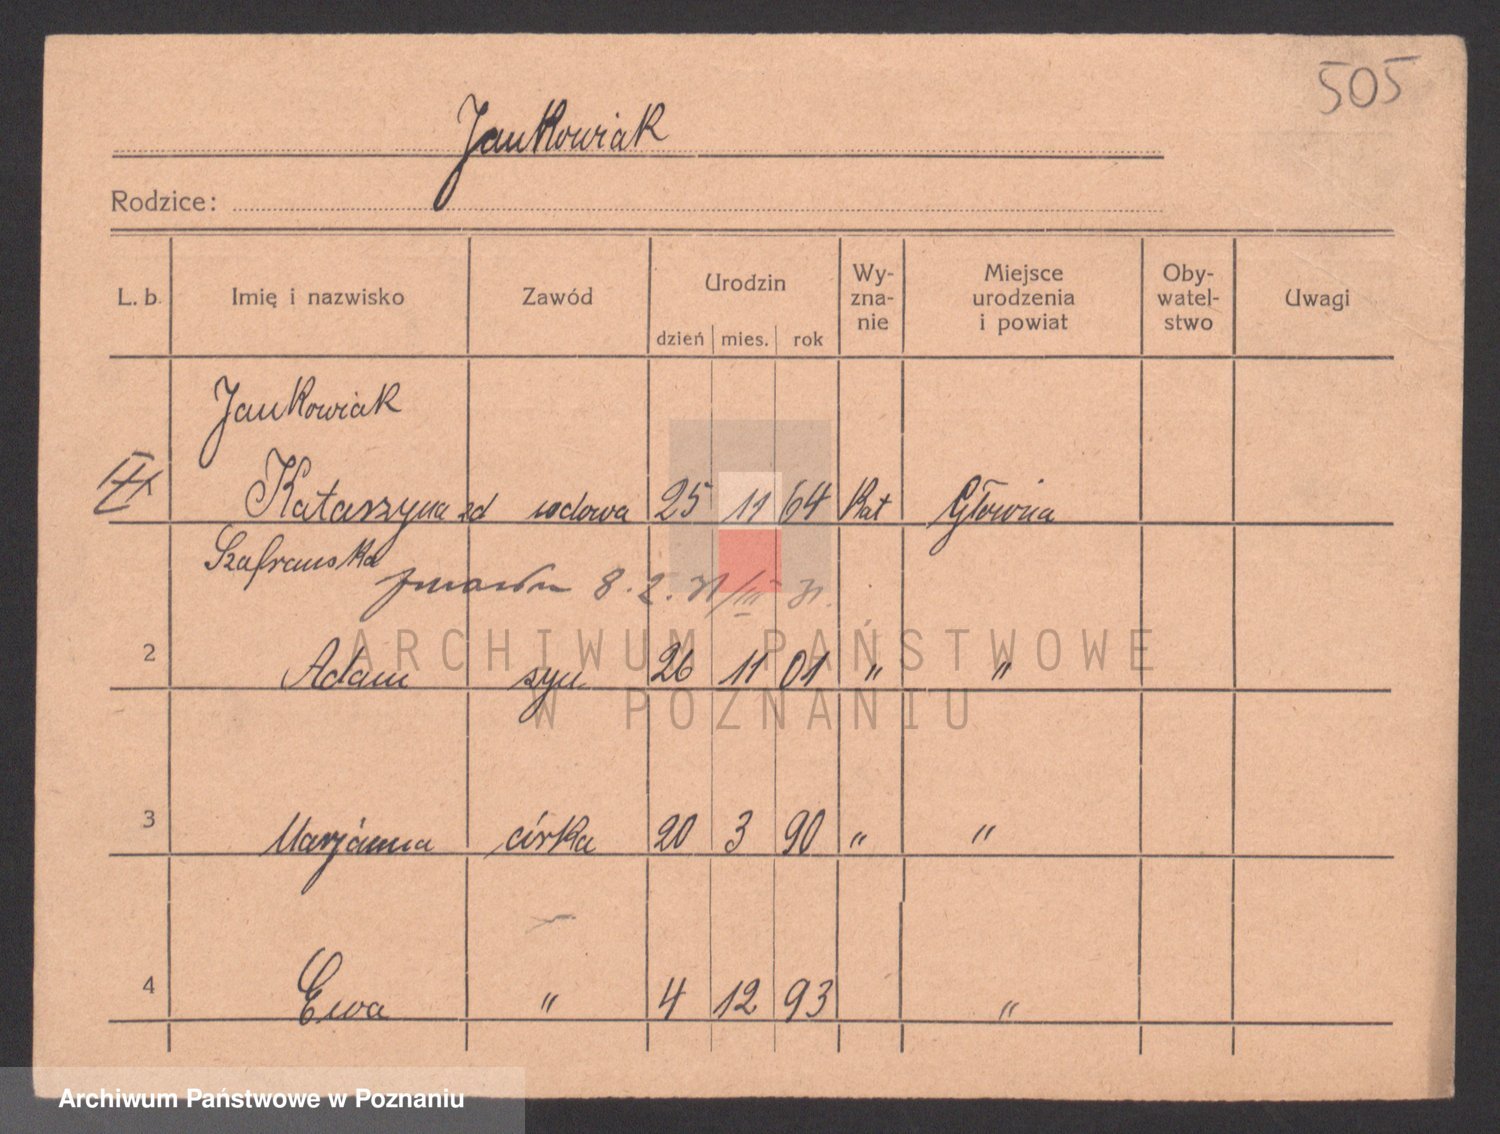 505
Jankowiak
Rodzice:
L. b. Imię i nazwisko Zawód Urodzin dzień mies. rok Wy-zna-nie Miejsce urodzenia i powiat Oby-watel-stwo Uwagi
Jankowiak
Katarzyna zd wdowa 25 11 64 Kat Główna
Szafrańska
8. 2. 31 / III 31.
ARCHIWUM PAŃSTWOWE
2 Adam syn 26 11 01 " "
W POZNANIU
3 Marjanna córka 20 3 90 " "
4 Ewa " 4 12 93 "
Archiwum Państwowe w Poznaniu